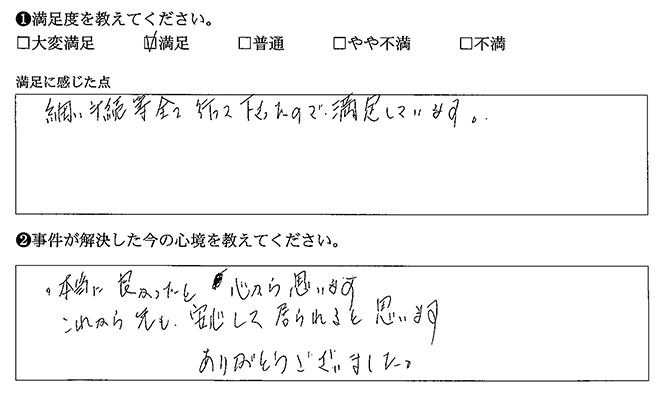 ❶満足度を教えてください。
□大変満足 ☑満足 □普通 □やや不満 □不満
満足に感じた点
細い手続等全て行って下さったので、満足しています。
❷事件が解決した今の心境を教えてください。
本当に良かったと 心から思います
これから先も、安心して居られると思います
ありがとうございました。